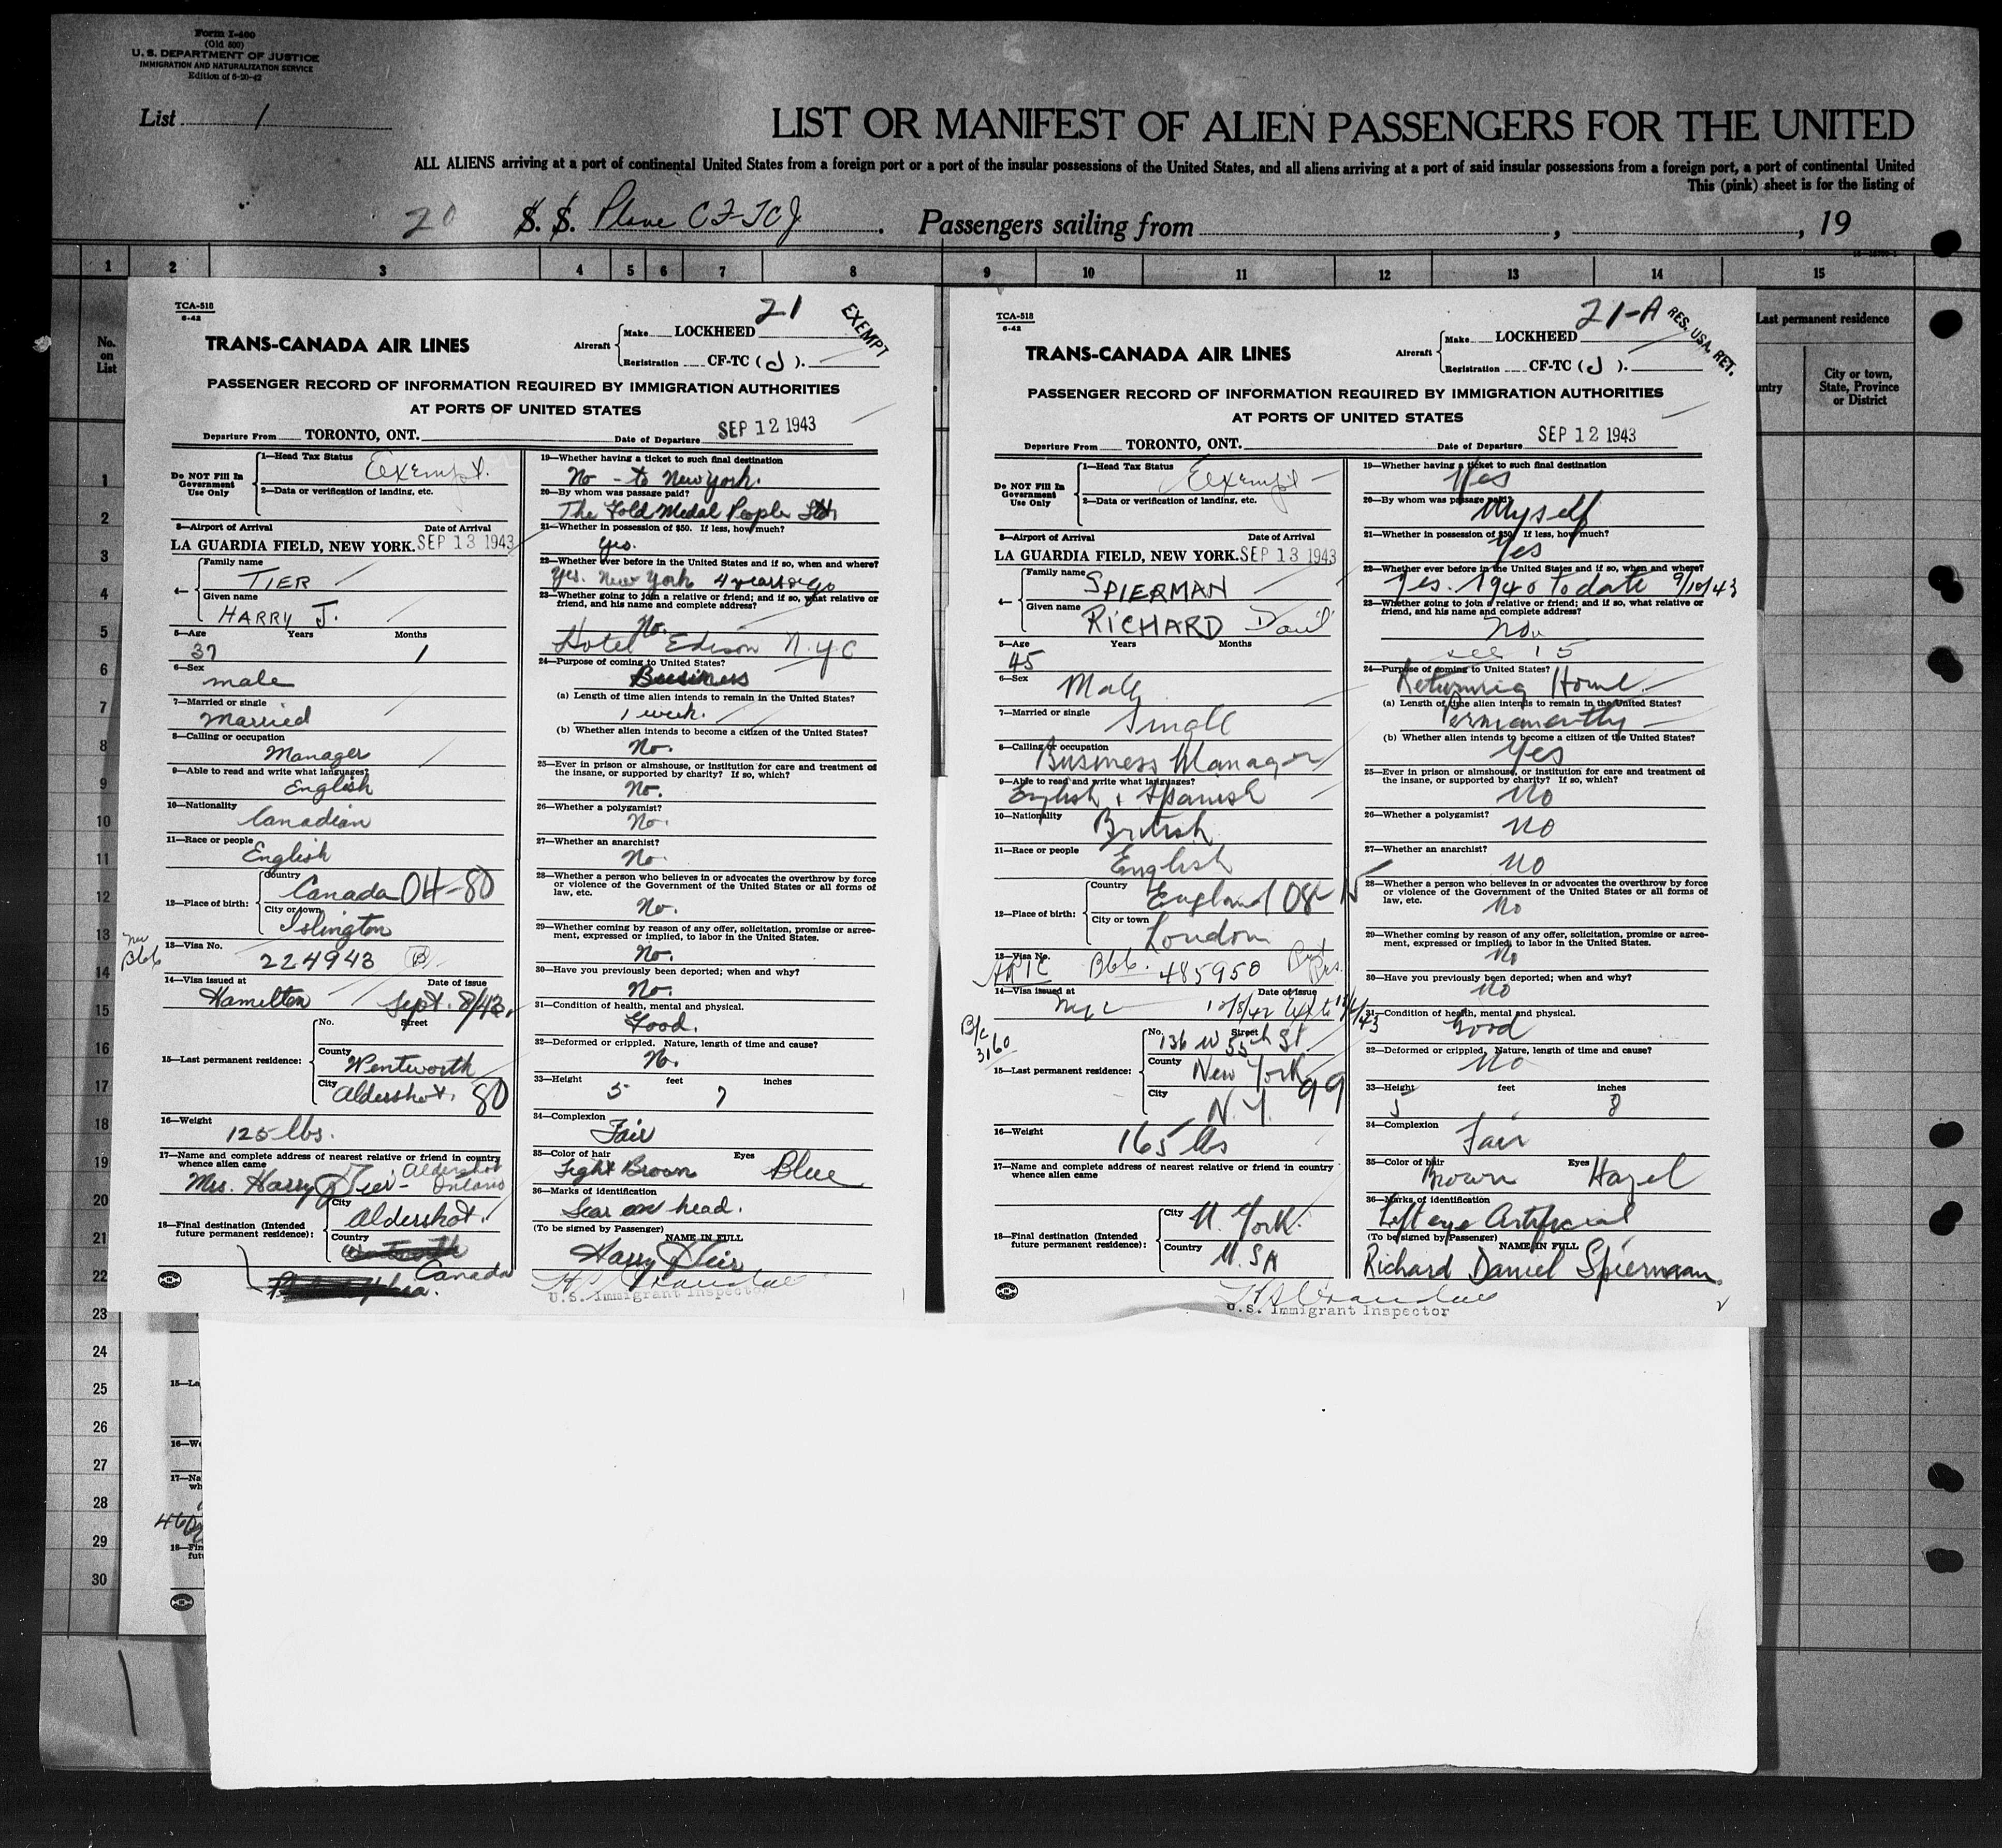 Form I-400
(Old 500)
U. S. DEPARTMENT OF JUSTICE
IMMIGRATION AND NATURALIZATION SERVICE
Edition of 6-20-42
List 1
LIST OR MANIFEST OF ALIEN PASSENGERS FOR THE UNITED
ALL ALIENS arriving at a port of continental United States from a foreign port or a port of the insular possessions of the United States, and all aliens arriving at a port of said insular possessions from a foreign port, a port of continental United
This (pink) sheet is for the listing of
20 S. S. Plane CF-TCJ. Passengers sailing from , , 19
1 2 3 4 5 6 7 8 9 10 11 12 13 14 15
No. on List
Last permanent residence
City or town, State, Province or District
1
2
3
4
5
6
7
8
9
10
11
12
13
14
15
16
17
18
19
20
21
22
23
24
25
26
27
28
29
30
TCA-518
6-42
21
EXEMPT
TRANS-CANADA AIR LINES
Aircraft
Make LOCKHEED
Registration CF-TC (J).
PASSENGER RECORD OF INFORMATION REQUIRED BY IMMIGRATION AUTHORITIES
AT PORTS OF UNITED STATES
Departure From TORONTO, ONT. Date of Departure SEP 12 1943
Do NOT Fill In Government Use Only
1—Head Tax Status Exempt.
2—Data or verification of landing, etc.
3—Airport of Arrival Date of Arrival
LA GUARDIA FIELD, NEW YORK. SEP 13 1943
4— Family name
TIER
Given name
HARRY J.
5—Age Years Months
37 1
6—Sex
male
7—Married or single
Married
8—Calling or occupation
Manager
9—Able to read and write what languages?
English
10—Nationality
Canadian
11—Race or people
English
12—Place of birth:
Country
Canada 04-80
City or town
Islington
13—Visa No.
224943 (B)
14—Visa issued at Date of issue
Hamilton Sept. 8/43.
15—Last permanent residence:
No. Street
County
Wentworth
City
Aldershot. 80
16—Weight
125 lbs.
17—Name and complete address of nearest relative or friend in country whence alien came
Mrs. Harry J Tier - Aldershot Ontario
18—Final destination (Intended future permanent residence):
City
Aldershot.
Country
Canada
19—Whether having a ticket to such final destination
No - to New York.
20—By whom was passage paid?
The Gold Medal People Ltd
21—Whether in possession of $50. If less, how much?
Yes.
22—Whether ever before in the United States and if so, when and where?
Yes. New York 4 years ago
23—Whether going to join a relative or friend; and if so, what relative or friend, and his name and complete address?
No.
Hotel Edison N.Y.C
24—Purpose of coming to United States?
Business
(a) Length of time alien intends to remain in the United States?
1 week.
(b) Whether alien intends to become a citizen of the United States?
No.
25—Ever in prison or almshouse, or institution for care and treatment of the insane, or supported by charity? If so, which?
No.
26—Whether a polygamist?
No.
27—Whether an anarchist?
No.
28—Whether a person who believes in or advocates the overthrow by force or violence of the Government of the United States or all forms of law, etc.
No.
29—Whether coming by reason of any offer, solicitation, promise or agreement, expressed or implied, to labor in the United States.
No.
30—Have you previously been deported; when and why?
No.
31—Condition of health, mental and physical.
Good.
32—Deformed or crippled. Nature, length of time and cause?
No.
33—Height feet inches
5 7
34—Complexion
Fair
35—Color of hair Eyes
Light Brown Blue
36—Marks of identification
Scar on head.
(To be signed by Passenger) NAME IN FULL
Harry J Tier
U.S. Immigrant Inspector
TCA-518
6-42
21-A
RES. USA. RET.
TRANS-CANADA AIR LINES
Aircraft
Make LOCKHEED
Registration CF-TC (J).
PASSENGER RECORD OF INFORMATION REQUIRED BY IMMIGRATION AUTHORITIES
AT PORTS OF UNITED STATES
Departure From TORONTO, ONT. Date of Departure SEP 12 1943
Do NOT Fill In Government Use Only
1—Head Tax Status Exempt
2—Data or verification of landing, etc.
3—Airport of Arrival Date of Arrival
LA GUARDIA FIELD, NEW YORK. SEP 13 1943
4— Family name
SPIERMAN
Given name
RICHARD
5—Age Years Months
45
6—Sex
Male
7—Married or single
Single
8—Calling or occupation
Business Manager
9—Able to read and write what languages?
English + Spanish
10—Nationality
British
11—Race or people
English
12—Place of birth:
Country
England 08-15
City or town
London
13—Visa No.
B66. 485950
14—Visa issued at Date of issue
15—Last permanent residence:
No. Street
136 W 55th St
County
New York 99
City
N.Y.
16—Weight
165 lbs
17—Name and complete address of nearest relative or friend in country whence alien came
18—Final destination (Intended future permanent residence):
City
N. York.
Country
U.SA
19—Whether having a ticket to such final destination
Yes
20—By whom was passage paid?
Myself
21—Whether in possession of $50. If less, how much?
Yes
22—Whether ever before in the United States and if so, when and where?
Yes. 1940 to date 9/10/43
23—Whether going to join a relative or friend; and if so, what relative or friend, and his name and complete address?
No
see 15
24—Purpose of coming to United States?
Returning Home
(a) Length of time alien intends to remain in the United States?
Permanently
(b) Whether alien intends to become a citizen of the United States?
Yes
25—Ever in prison or almshouse, or institution for care and treatment of the insane, or supported by charity? If so, which?
No
26—Whether a polygamist?
No
27—Whether an anarchist?
No
28—Whether a person who believes in or advocates the overthrow by force or violence of the Government of the United States or all forms of law, etc.
No
29—Whether coming by reason of any offer, solicitation, promise or agreement, expressed or implied, to labor in the United States.
No
30—Have you previously been deported; when and why?
No
31—Condition of health, mental and physical.
Good
32—Deformed or crippled. Nature, length of time and cause?
No
33—Height feet inches
5 8
34—Complexion
Fair
35—Color of hair Eyes
Brown Hazel
36—Marks of identification
Left eye Artificial
(To be signed by Passenger) NAME IN FULL
Richard Daniel Spierman.
U.S. Immigrant Inspector